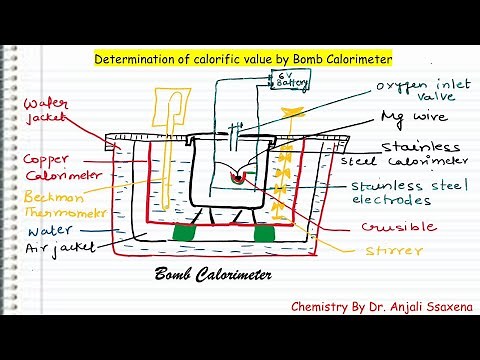 Determination of calorific value by Bomb Calorimeter
6V
Battery
Oxygen inlet
valve
Mg wire
Stainless
Steel calorimeter
Stainless steel
electrodes
Crusible
Stirrer
Water
jacket
Copper
Calorimeter
Beckman
Thermometer
Water
Air jacket
Bomb Calorimeter
Chemistry By Dr. Anjali Ssaxena